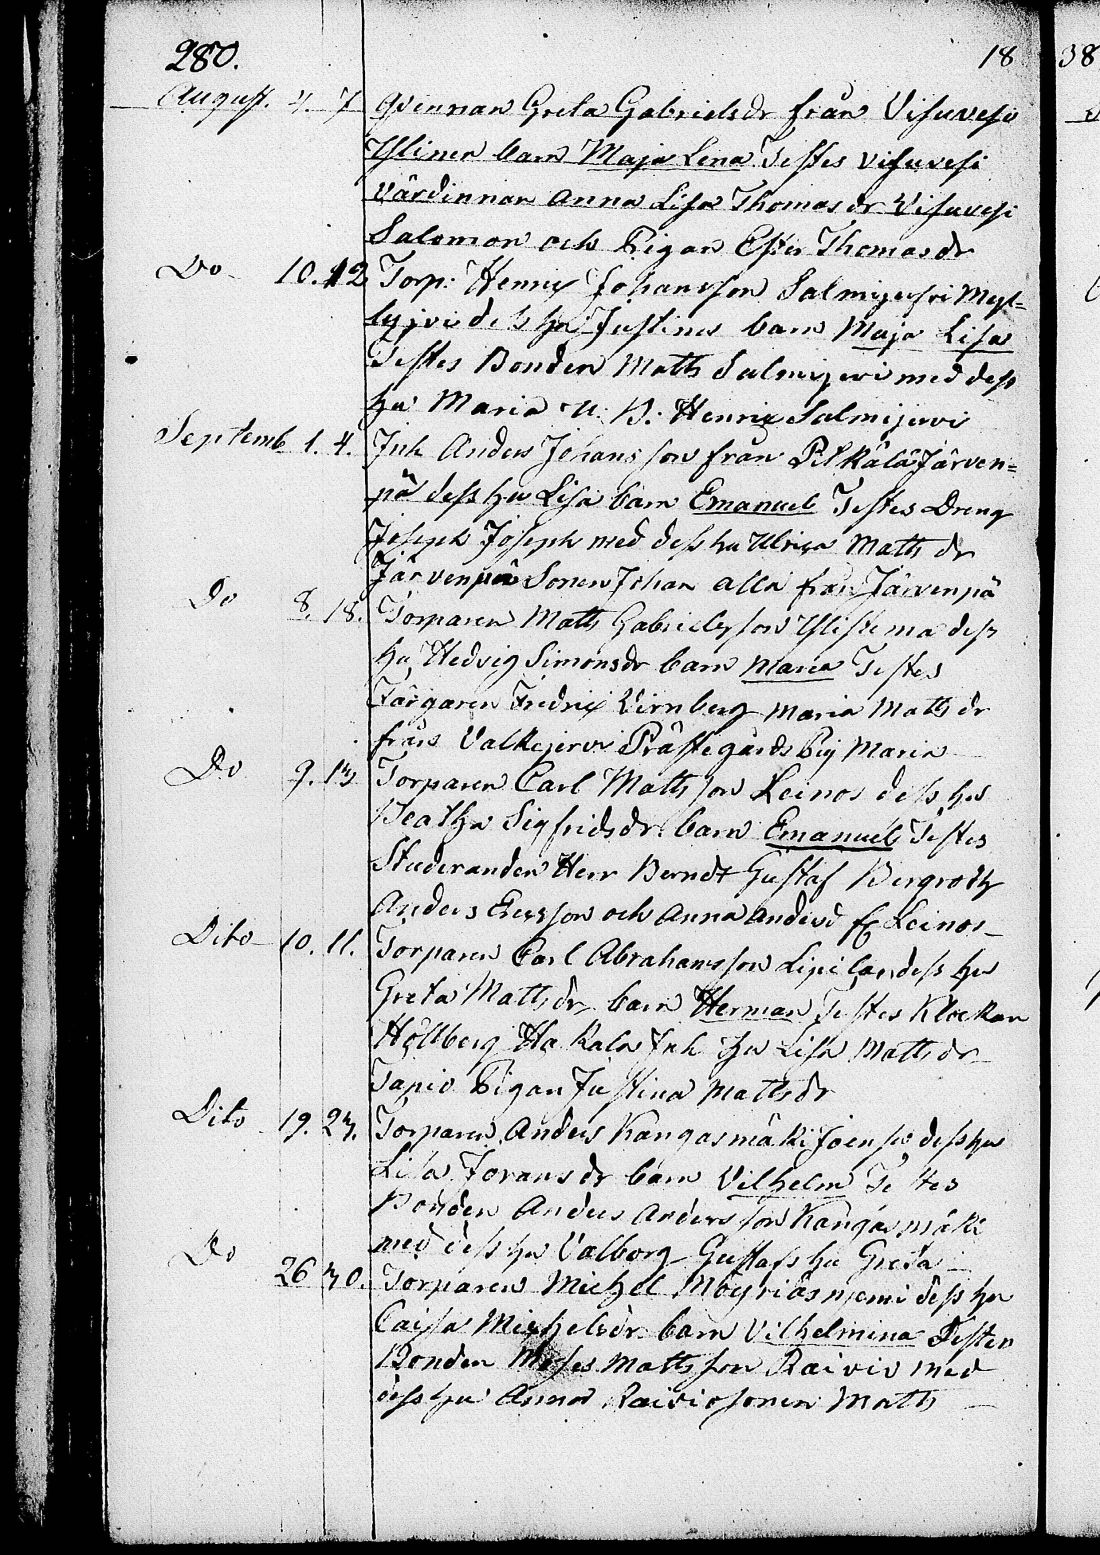 280. 18 38
August. 4. 7 Qvennan Greta Gabrielsdr från Visuvesi
Yliner barn Maja Lena Testes Visuvesi
Värdinnan Anna Lisa Thomasdr Visuvesi
Salomon och Pigan Ester Thomasdr
Do 10. 12 Torp. Henric Johansson Salmijerfvi Myl-
lyjvi dess hu Justina barn Maja Lisa
Testes Bonden Matts Salmijervi med dess
hu Maria u. B. Henric Salmijervi
Septemb 1. 4. Inh Anders Johansson från Pilkälä Järven=
pä dess hu Lisa barn Emanuel Testes Dreng
Joseph Joseph med dess hu Ulrica Matts dr
Järvenpä Sonen Johan alla från Järvenpä
Do 8. 18. Torparen Matts Gabrielsson Ylistema dess
hu Hedvig Simonsdr barn Maria Testes
Färgaren Fredric Virnberg Maria Matts dr
från Valkejervi Prästegårds Pig Maria
Do 9. 13 Torparen Carl Mattsson Leinos dess hu
Beatha Sigfridsdr barn Emanuel Testes
Studeranden Herr Berndt Gustaf Bergroth
Anders Ericsson och Anna Andersd fr Leinos
Dito 10. 11. Torparen Carl Abrahamsson dess hu
Greta Mattsdr barn Herman Testes Klockan
Hållberg Hakala Inh hu Lisa Mattsdr
Tapio Pigan Justina Mattsdr
Dito 19. 23. Torparen Anders Kangasmäki Joensu dess hu
Lisa Jovansdr barn Vilhelm Testes
Bonden Anders Andersson Kangasmäki
med dess hu Valborg Gustafs hu Greta
Do 26 30. Torparen Michel Möyriäsnjemi dess hu
Caisa Michelsdr barn Vilhelmina Testes
Bonden Moses Mattsson Raivio med
dess hu Anna Raivio sonen Matts